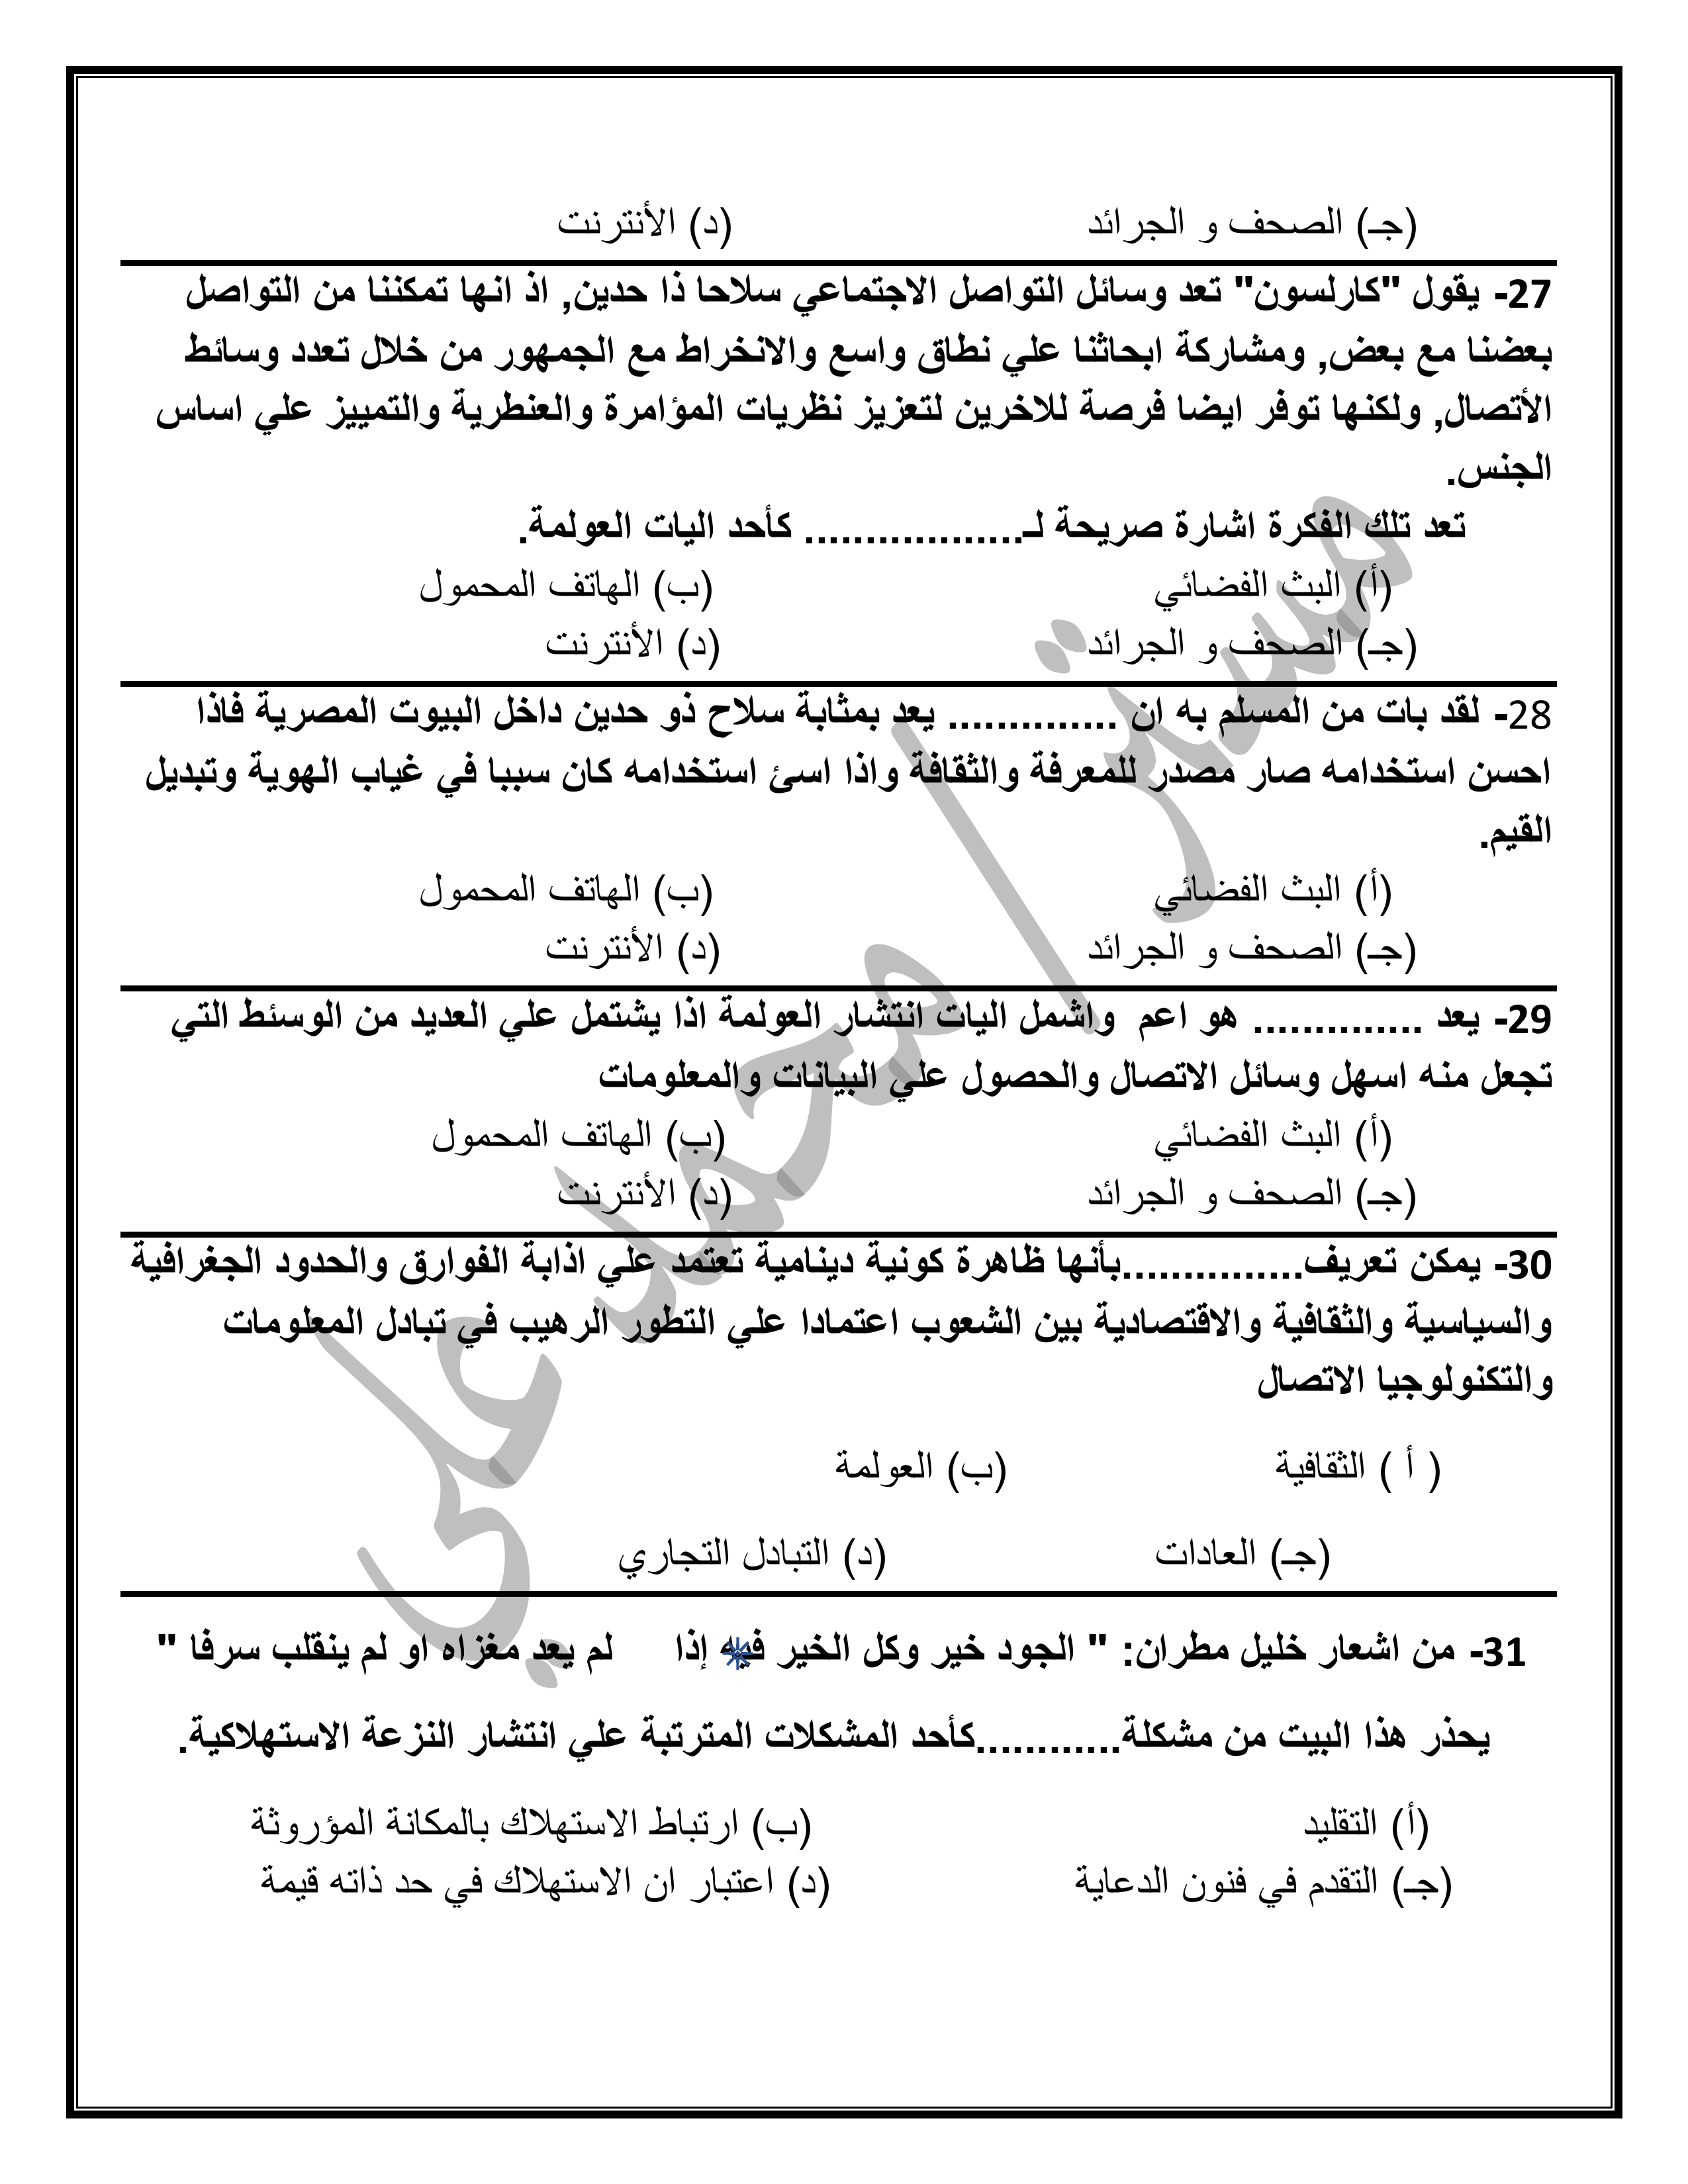 (جـ) الصحف و الجرائد (د) الأنترنت
27- يقول "كارلسون" تعد وسائل التواصل الاجتماعي سلاحا ذا حدين, اذ انها تمكننا من التواصل
بعضنا مع بعض, ومشاركة ابحاثنا علي نطاق واسع والانخراط مع الجمهور من خلال تعدد وسائط
الأتصال, ولكنها توفر ايضا فرصة للاخرين لتعزيز نظريات المؤامرة والعنطرية والتمييز علي اساس
الجنس.
تعد تلك الفكرة اشارة صريحة لـ.................. كأحد اليات العولمة.
(أ) البث الفضائي (ب) الهاتف المحمول
(جـ) الصحف و الجرائد (د) الأنترنت
28- لقد بات من المسلم به ان .............. يعد بمثابة سلاح ذو حدين داخل البيوت المصرية فاذا
احسن استخدامه صار مصدر للمعرفة والثقافة واذا اسئ استخدامه كان سببا في غياب الهوية وتبديل
القيم.
(أ) البث الفضائي (ب) الهاتف المحمول
(جـ) الصحف و الجرائد (د) الأنترنت
29- يعد .............. هو اعم واشمل اليات انتشار العولمة اذا يشتمل علي العديد من الوسئط التي
تجعل منه اسهل وسائل الاتصال والحصول علي البيانات والمعلومات
(أ) البث الفضائي (ب) الهاتف المحمول
(جـ) الصحف و الجرائد (د) الأنترنت
30- يمكن تعريف...............بأنها ظاهرة كونية دينامية تعتمد علي اذابة الفوارق والحدود الجغرافية
والسياسية والثقافية والاقتصادية بين الشعوب اعتمادا علي التطور الرهيب في تبادل المعلومات
والتكنولوجيا الاتصال
( أ ) الثقافية (ب) العولمة
(جـ) العادات (د) التبادل التجاري
31- من اشعار خليل مطران: " الجود خير وكل الخير فيه إذا لم يعد مغزاه او لم ينقلب سرفا "
يحذر هذا البيت من مشكلة............كأحد المشكلات المترتبة علي انتشار النزعة الاستهلاكية.
(أ) التقليد (ب) ارتباط الاستهلاك بالمكانة المؤروثة
(جـ) التقدم في فنون الدعاية (د) اعتبار ان الاستهلاك في حد ذاته قيمة
مستر/محمد علي